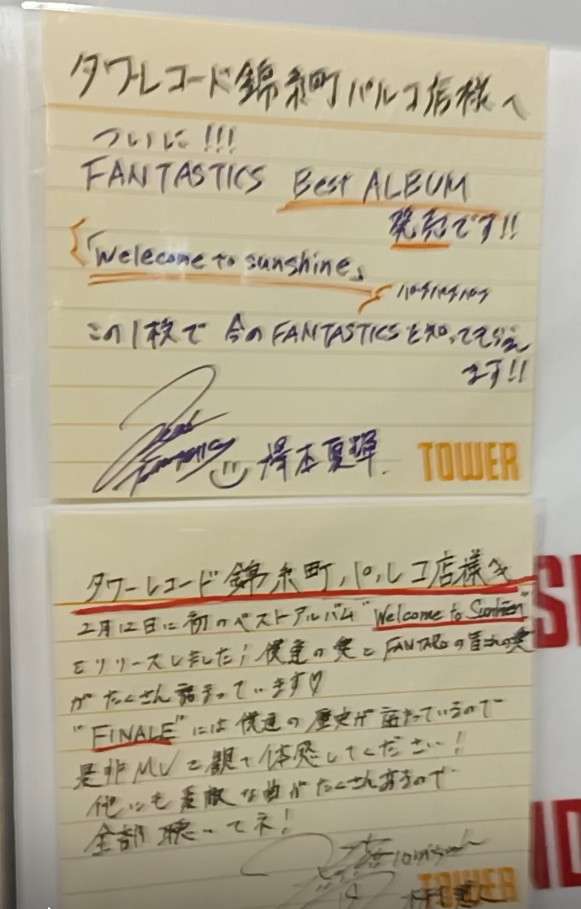 タワーレコード錦糸町パルコ店様へ
ついに!!!
FANTASTICS Best ALBUM
発売です!!
「Welcome to sunshine」
パチパチパチ
この1枚で 今のFANTASTICSを知ってもらえ
ます!!
澤本夏輝
TOWER
タワーレコード錦糸町パルコ店様へ
2月12日に初のベストアルバム"Welcome to Sunshine"
をリリースしました!僕達の愛とFANTAROの皆さんの愛
がたくさん詰まっています♡
"FINALE"には僕達の歴史が詰まっているので
是非MVを観て体感してください!
他にも素敵な曲がたくさんあるので
全部聴いてネ!
TOWER